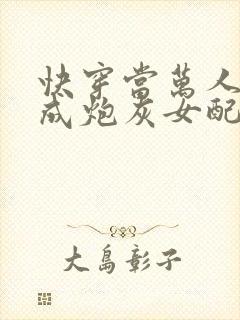 快穿當萬人
成炮灰女配
大島彰子